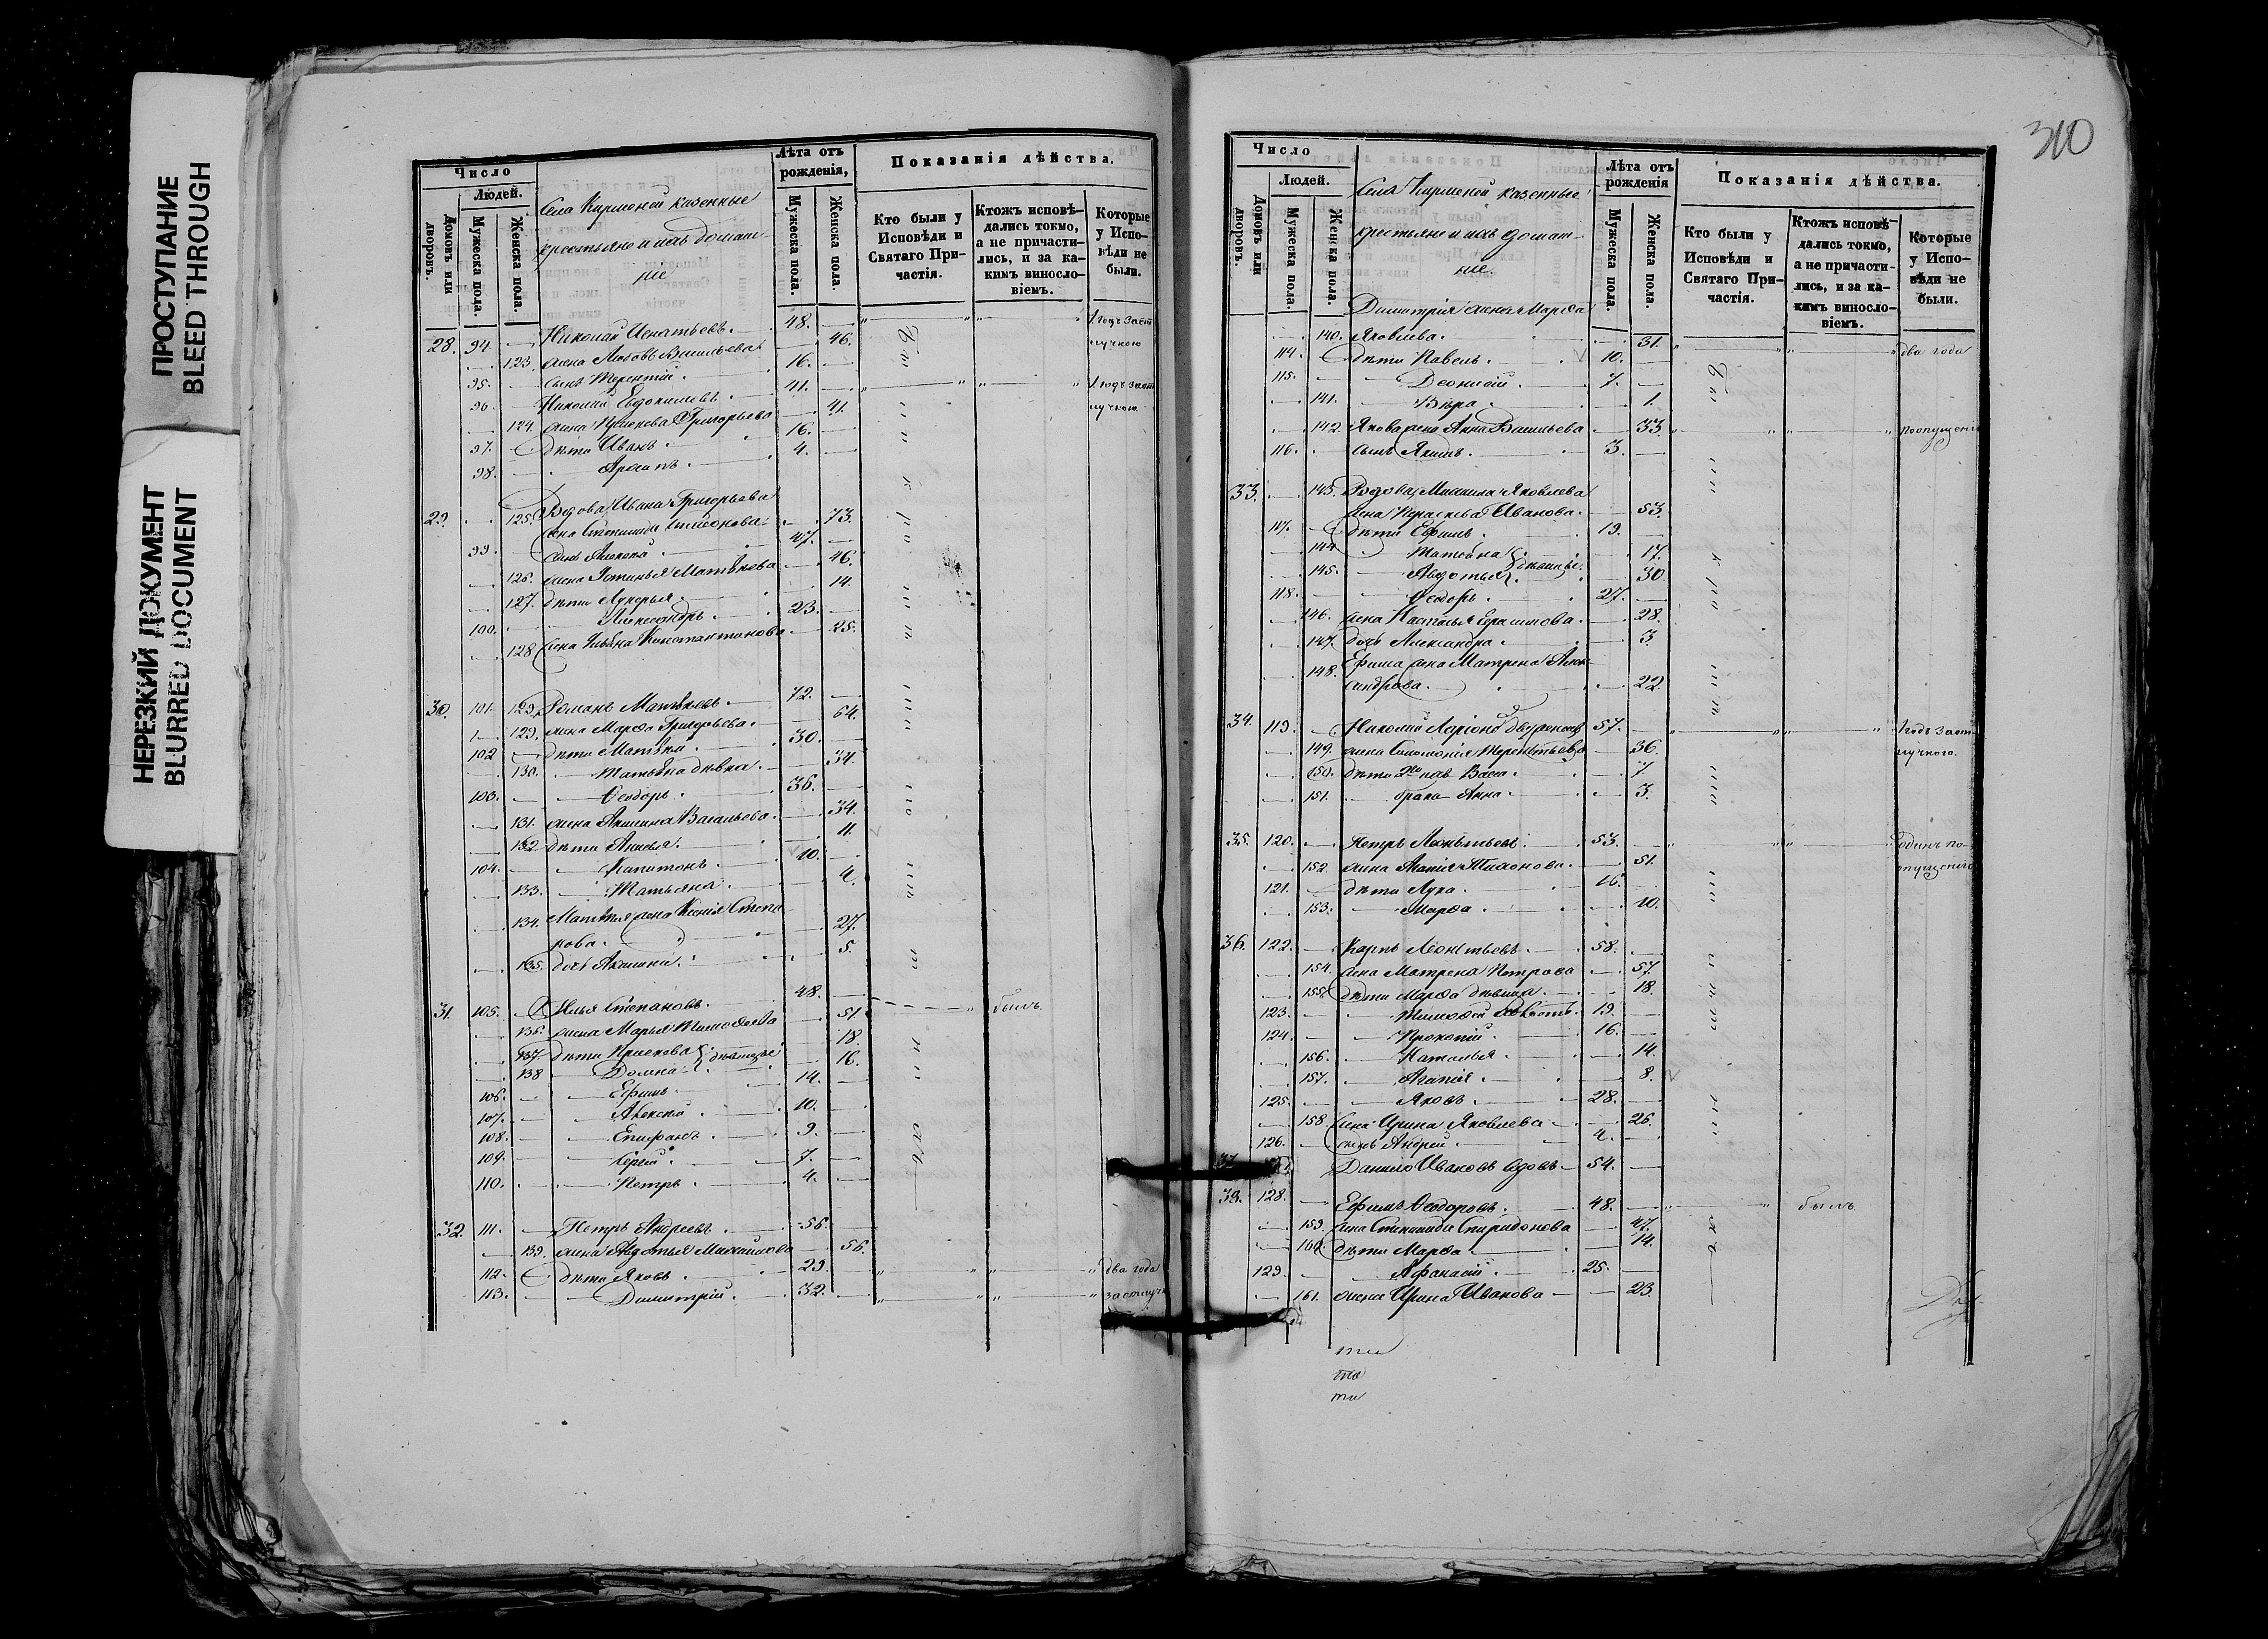 ПРОСТУПАНИЕ
BLEED THROUGH
НЕРЕЗКИЙ ДОКУМЕНТ
BLURRED DOCUMENT
Число
Людей.
Домовъ или дворовъ.
Мужеска пола.
Женска пола.
Села казенные
крестьяне и ихъ домаш-
ніе
Лѣта отъ рожденія,
Мужеска пола.
Женска пола.
Показанія дѣйства.
Кто были у Исповѣди и Святаго При-частія.
Ктожъ исповѣ-дались токмо, а не причасти-лись, и за ка-кимъ виносло-віемъ.
Которые у Испо-вѣди не были.
28. 94. Николай Игнатьевъ. 48. 1 годъ за от
123. жена Любовь Васильева 46. лучкою
95. сынъ Терентій. 16.
96. Николай Евдокимовъ. 41. 1 годъ за от
124. жена Григорьева 41. лучкою
97. дѣти Иванъ. 16.
98. 4.
29. 125. Вдова Ивана Григорьева
жена Степанида 73.
99. сынъ Алексѣй 47.
126. жена Устинья Матвѣева 46.
127. дѣти Лукерья. 14.
100. Александръ. 23.
128. жена Константинова 25.
30. 101. Романъ Матвѣевъ. 72.
129. жена Марѳа Григорьева. 64.
102. дѣти Матвѣй. 30.
130. Татьяна дѣвка. 34.
103. Ѳеодоръ. 36.
131. жена Акилина Васильева. 34.
132. дѣти Анисья. 11.
104. Капитонъ. 10.
133. Татьяна. 4.
134. Матвѣя жена Ксенія Степа
нова. 27.
135. дочь 5.
31. 105. Илья Степановъ. 48. былъ.
136. жена Марья Тимоѳеева 51.
137. дѣти дѣвицы 18.
138. Домна 16.
106. Ефимъ 14.
107. Алексѣй. 10.
108. Епифанъ. 9.
109. Сергѣй. 7.
110. Петръ. 4.
32. 111. Петръ Андреевъ. 56.
139. жена Авдотья Михайлова 56.
112. дѣти Яковъ. 29. два года
113. Димитрій. 32. за отлуч
310
Число
Людей.
Домовъ или дворовъ.
Мужеска пола.
Женска пола.
Села казенные
крестьяне и ихъ домаш-
ніе.
Лѣта отъ рожденія
Мужеска пола.
Женска пола.
Показанія дѣйства.
Кто были у Исповѣди и Святаго При-частія.
Ктожъ исповѣ-дались токмо, а не причасти-лись, и за ка-кимъ виносло-віемъ.
Которые у Испо-вѣди не были.
Димитрія жена Марѳа
140. Яковлева. 31.
114. дѣти Павелъ. 10. два года
115. Деонисій. 7.
141. Вѣра. 1.
142. Якова жена Анна Васильева 33. по опущенію
116. сынъ Якимъ. 3.
33. 143. Вдова Михаила Яковлева
жена Параскева Иванова. 53.
117. дѣти Ефимъ. 19.
144. Татьяна 17.
145. Авдотья дѣвицы. 30.
118. Ѳеодоръ. 27.
146. жена Настасья Герасимова. 28.
147. дочь Александра. 3.
148. Ефима жена Матрена Алек-
сандрова. 22.
34. 119. Николай двубрачный 57. 1 годъ за от-
149. жена Соломонія Терентьева 36. лучкою.
150. дѣти 2го Васса. 7.
151. брака Анна. 3.
35. 120. Петръ Леонтьевъ. 53. одинъ по
152. жена Тихонова. 51. опущенію
121. дѣти Лука. 16.
153. Марѳа. 10.
36. 122. Карпъ Леонтьевъ. 58.
154. жена Матрена Петрова 57.
155. дѣти Марѳа дѣвица. 18.
123. Тимоѳей холостъ. 19.
124. Прокопій. 16.
156. Наталья. 14.
157. Агапія. 8.
125. Яковъ. 28.
158. жена Ирина Яковлева 26.
126. сынъ Андрей. 4.
37. Данило Ивановъ вдовъ 54.
38. 128. Ефимъ Ѳеодоровъ. 48. былъ.
159. жена Степанида Спиридонова 47.
160. дѣти Марѳа. 14.
129. Афанасій. 25.
161. жена Ирина Иванова 23.